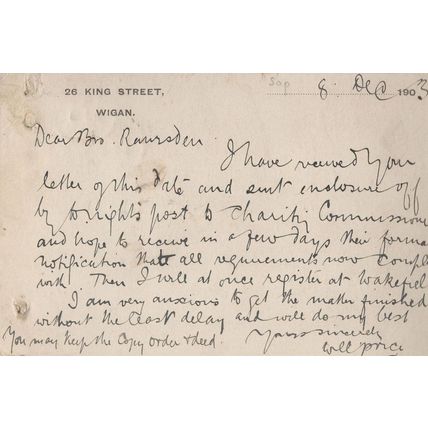 26 KING STREET,
WIGAN.
8 Dec 1903
Dear Bro. Ramsden.
I have received your
letter of this date and sent enclosure off
by to.night's post to Charity Commissione
and hope to receive in a few days their forma
notification that all requirements now compl
with. Then I will at once register at Wakefiel
I am very anxious to get the matter finished
without the least delay and will do my best
You may keep the Copy order & deed.
Yours sincerely
Will Price